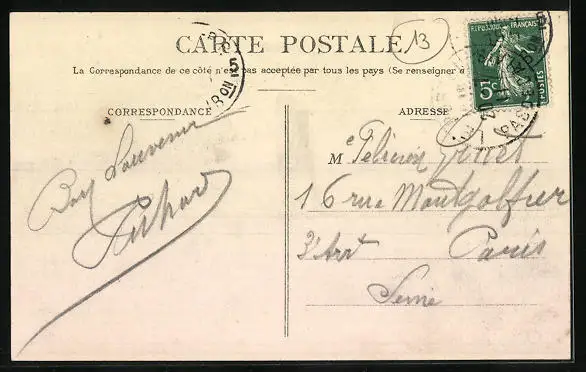 CARTE POSTALE
13
La Correspondance de ce côté n'est pas acceptée par tous les pays (Se renseigner à
RÉPUBLIQUE FRANÇAISE
5c
POSTES
CORRESPONDANCE
ADRESSE
Bon Souvenir
M e Félicien
16 rue Montgolfier
3e Arrt Paris
Seine